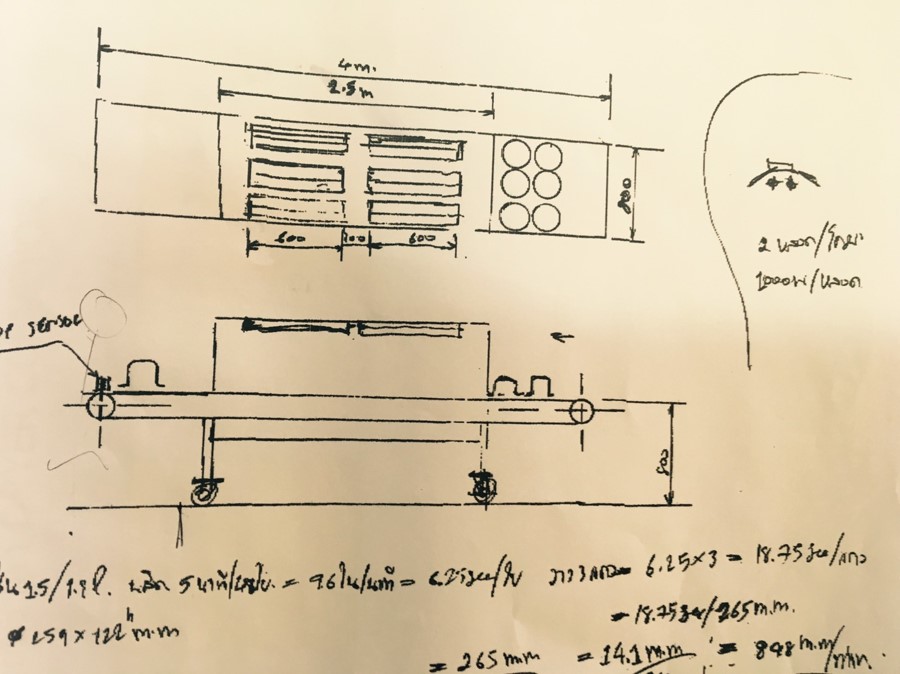 4 m.
2.5 m
600
100
600
800
2 หลอด/โคม
1000W/หลอด
SENSOR
800
1.5/1.8 ล. ผลิต 5 นาที = 9.6 ใบ/นาที = 6.25 วิ/ใบ วาง 3 แถว = 6.25×3 = 18.75 วิ/แถว
= 18.75 วิ/265 m.m.
ø 259 × 122 h m.m
= 265 m.m = 14.1 m.m = 848 m.m/นาที.